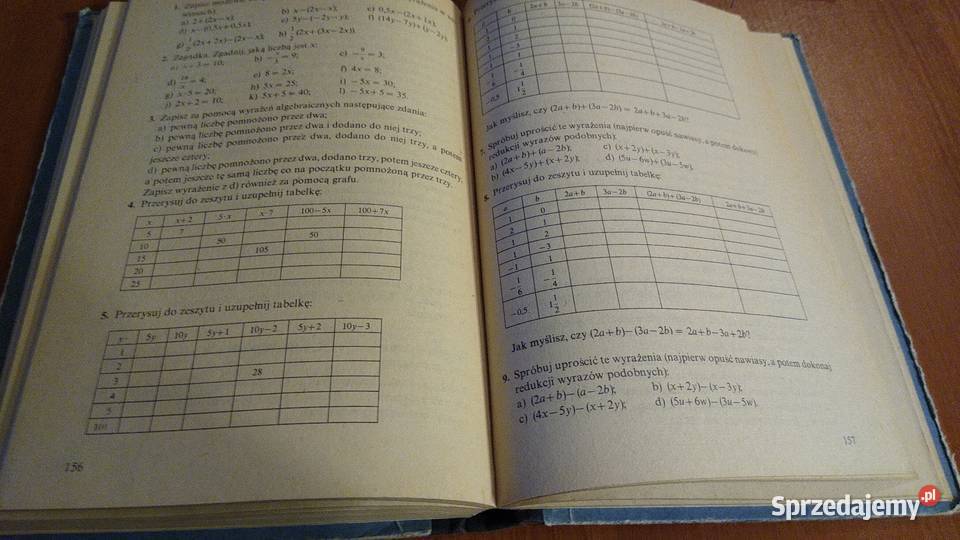 1. Zapisz
a) 2+(2x−x);
b) x−(2x−x);
c) 0,5x−(2x+1x);
e) 5y−(−2y−y);
f) (14y−7y)+(y−2y);
g) ½(2x+2x)−(2x−x);
h) ½(2x+(3x−2x)).
2. Zagadka. Zgadnij, jaką liczbą jest x:
a) x+3=10;
d)
=4;
e) 8=2x;
f) 4x=8;
g) x·5=20;
h) 5x=25;
i) −5x=30;
j) 2x+2=10;
k) 5x+5=40;
l) −5x+5=35.
3. Zapisz za pomocą wyrażeń algebraicznych następujące zdania:
a) pewną liczbę pomnożono przez dwa;
b) pewną liczbę pomnożono przez dwa i dodano do niej trzy;
c) pewną liczbę pomnożono przez dwa, dodano do niej trzy, a potem
jeszcze cztery;
d) pewną liczbę pomnożono przez dwa, dodano trzy, potem jeszcze cztery,
a potem jeszcze tę samą liczbę co na początku pomnożoną przez trzy.
Zapisz wyrażenie z d) również za pomocą grafu.
4. Przerysuj do zeszytu i uzupełnij tabelkę:
x x+2 5·x x·7 100−5x 100+7x
5 7
10 50 50
15 105
20
25
5. Przerysuj do zeszytu i uzupełnij tabelkę:
y 5y 10y 5y+1 10y−2 5y+2 10y−3
1
2
3 28
4
5
100
156
a b 2a+b 3a−2b (2a+b)+(3a−2b)
1 0
2 1
1 2
1 −3
−1 1
−0,5 1½
Jak myślisz, czy (2a+b)+(3a−2b) = 2a+b+3a−2b?
7. Spróbuj uprościć te wyrażenia (najpierw opuść nawiasy, a potem dokonaj
redukcji wyrazów podobnych):
a) (2a+b)+(a−2b);
c) (x+2y)+(x−3y);
b) (4x−5y)+(x+2y);
d) (5u−6w)+(3u−5w).
8. Przerysuj do zeszytu i uzupełnij tabelkę:
a b 2a+b 3a−2b (2a+b)+(3a−2b) 2a+b+3a−2b
1 0
2 1
1 2
1 −3
−1 1
−1/6 −1/4
−0,5 1½
Jak myślisz, czy (2a+b)−(3a−2b) = 2a+b−3a+2b?
9. Spróbuj uprościć te wyrażenia (najpierw opuść nawiasy, a potem dokonaj
redukcji wyrazów podobnych):
a) (2a+b)−(a−2b);
b) (x+2y)−(x−3y);
c) (4x−5y)−(x+2y);
d) (5u+6w)−(3u−5w).
157
Sprzedajemy.pl